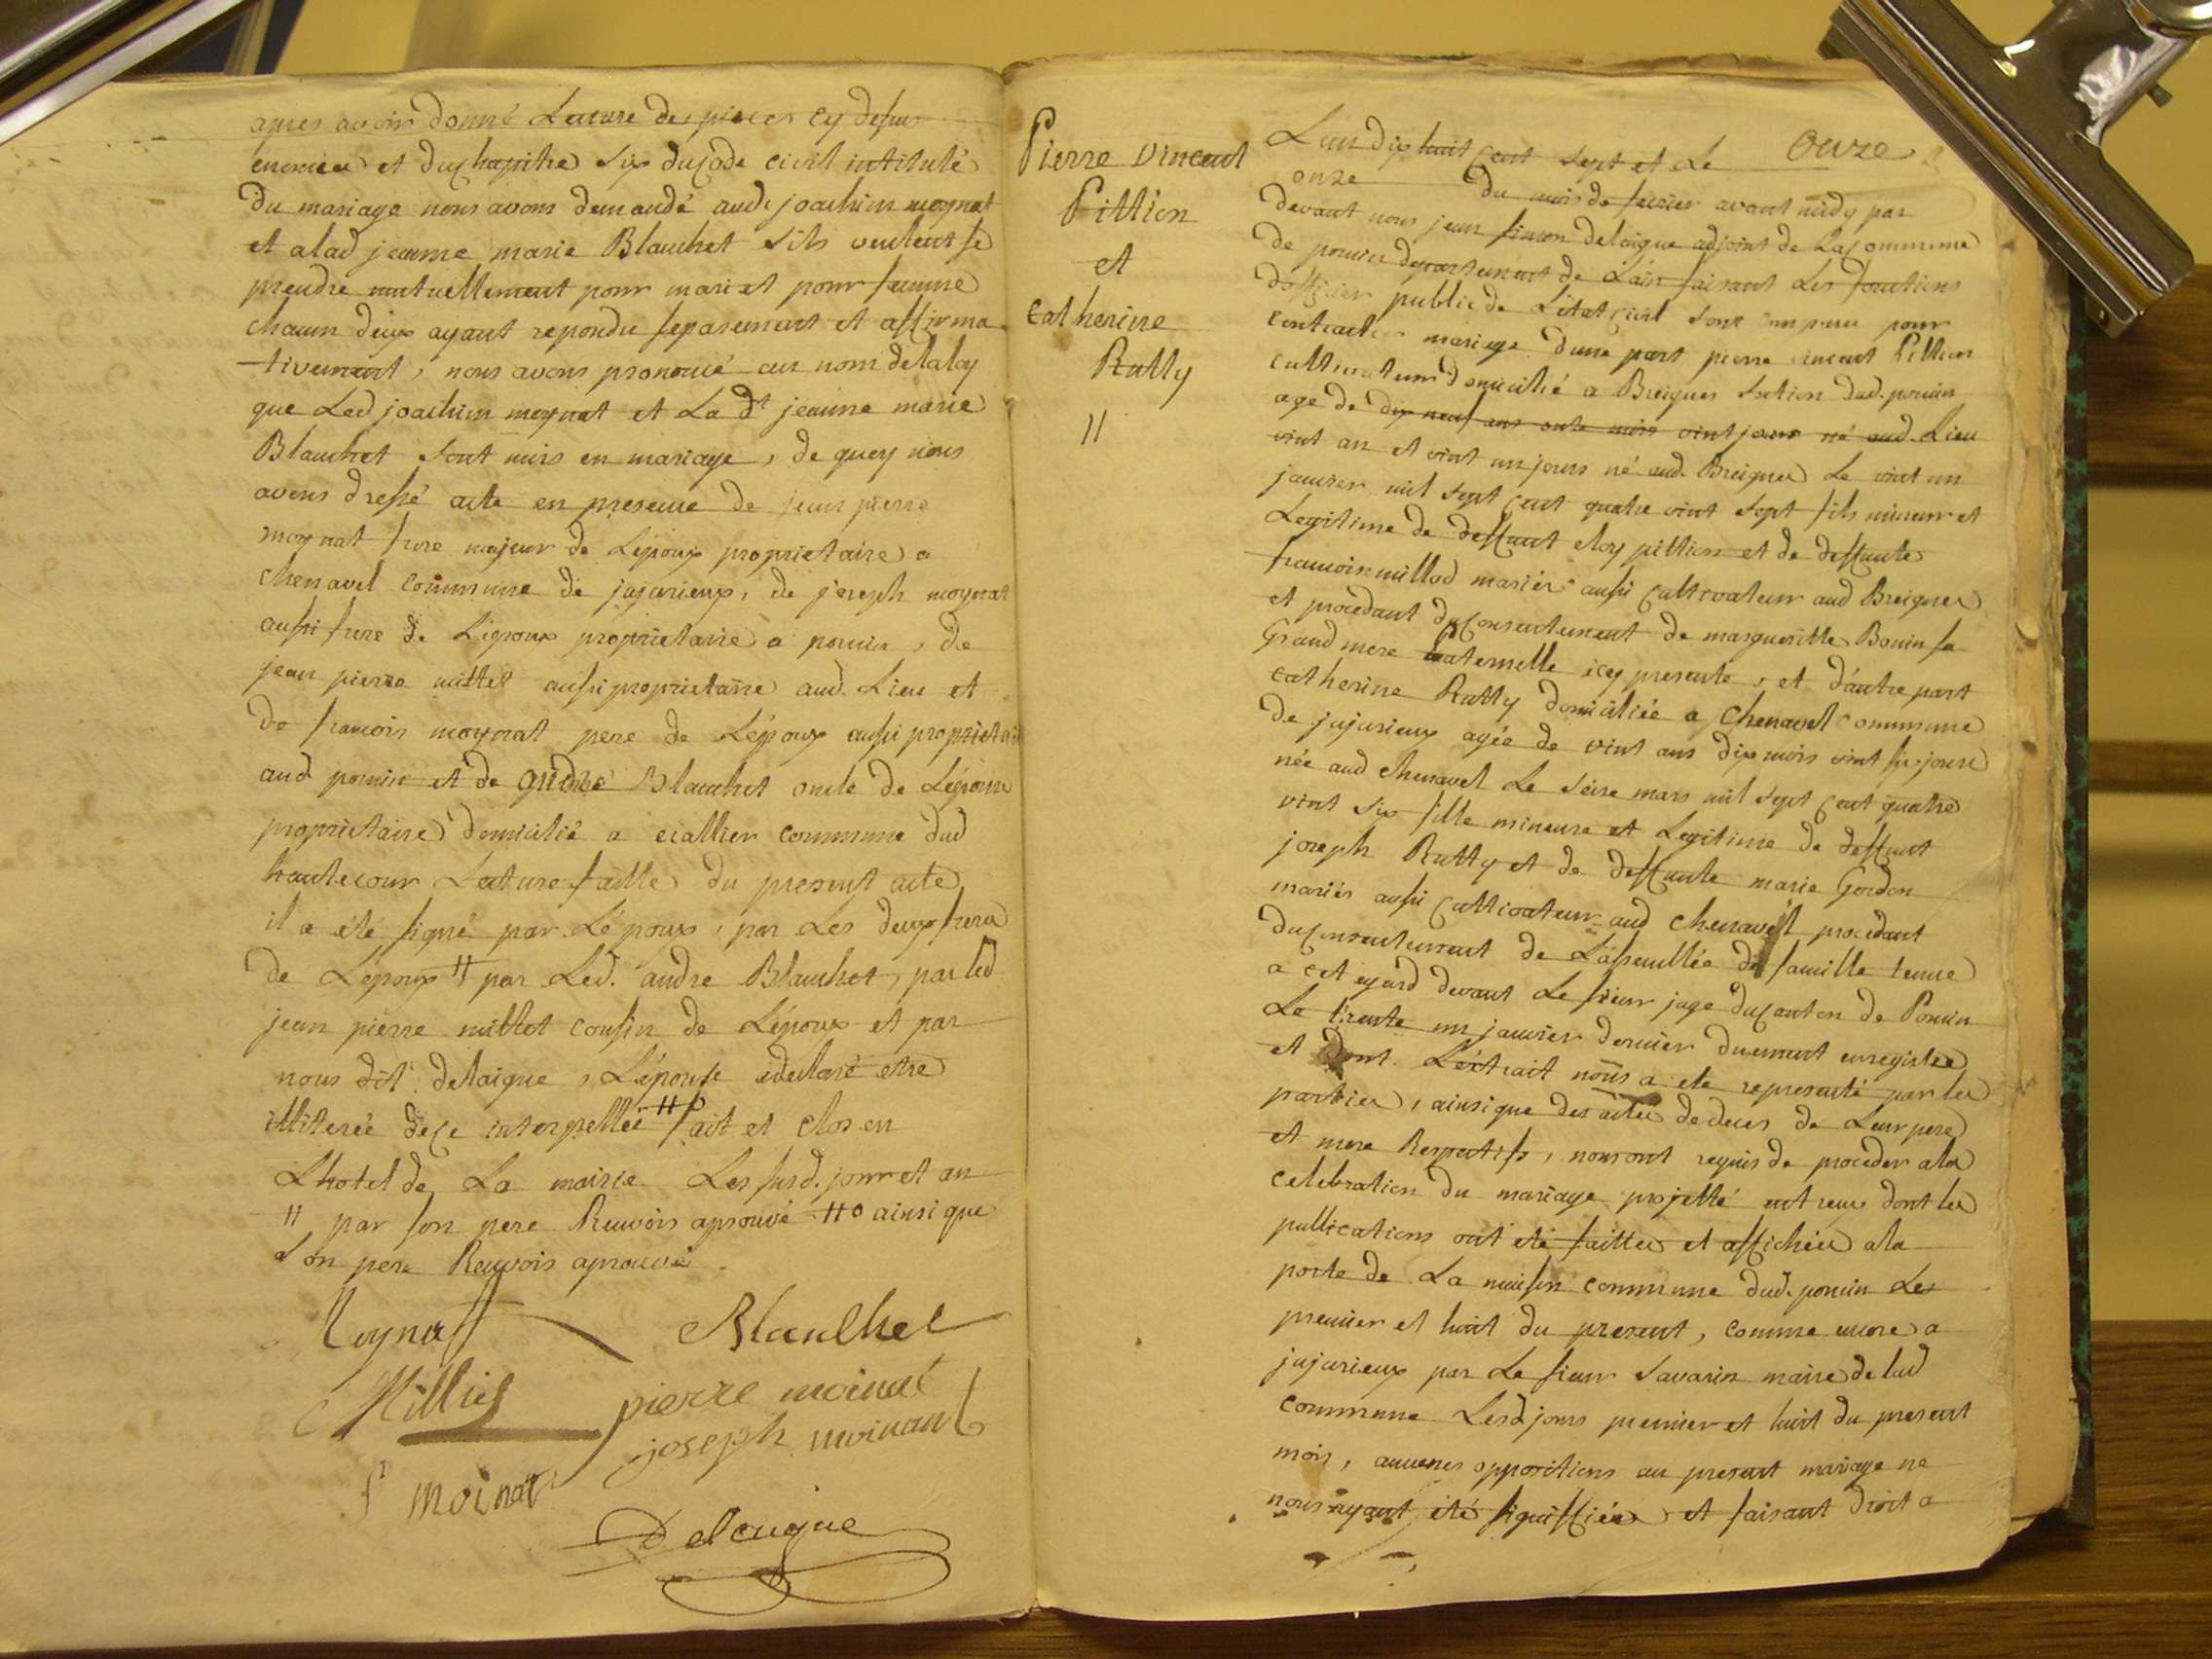 apres avoir donné Lecture des pieces cy dessus
enoncées et du chapitre six du code civil intitulé
du mariage nous avons demandé aud. joachim moynat
et alad jeanne marie Blanchet sils veulent se
prendre mutuellement pour mari et pour femme
chacun deux ayant repondu separement et affirma
-tivement, nous avons prononcé au nom delaloy
que Led joachim moynat et La dt jeanne marie
Blanchet sont unis en mariage, de quoy nous
avons dressé acte en presence de jean pierre
moynat frere majeur de Lépoux proprietaire a
chenavel commune de jujurieux, de joseph moynat
aussi frere de Lépoux proprietaire a poncin, de
jean pierre millet aussi proprietaire aud. Lieu et
de francois moynat pere de Lépoux aussi proprietai
aud poncin et de andré Blanchet oncle de Lépouse
proprietaire domicilié a ecallier commune dud
hautecour Lecture faitte du present acte
il a été signé par Lépoux, par Les deux freres
de Lépoux # par Led. andre Blanchet, par led
jean pierre millet cousin de Lépoux et par
nous dit delaigue, Lépouse adeclaré etre
illiterée dece interpellée #o fait et clos en
Lhotel de La mairie Les susd. jour et an
# par son pere Renvois aprouvé #o ainsi que
son pere Renvois aprouvé
Moynat Blanchet
Milliet pierre moinat
joseph moinant
f moinat
Delaigue
Pierre vincent
Pittion
et
catherine
Rutty
//
onze
Lan dix huit cent sept et Le
onze du mois de fevrier avant midy par
devant nous jean simon delaigue adjoint de Lacommune
de poncin departement de Lain faisant Les fonctions
dofficier public de Létat civil sont comparus pour
contracter mariage dune part pierre vincent Pittion
cultivateur domicilié a Breignes section dud. poncin
age de dix neuf ans onze mois vint jours né aud. Lieu
vint an et vint un jours né aud. Breignes Le vint un
janvier mil sept cent quatre vint sept fils mineur et
Legitime de deffunt eloy pittion et de deffunte
francoise millod mariés aussi cultivateur aud Breignes
et procedant du consentement de marguerite Bouin sa
Grand mere paternelle icy presente, et d'autre part
catherine Rutty domiciliée a chenavel commune
de jujurieux agée de vint ans dix mois vint six jours
née aud chenavel Le seise mars mil sept cent quatre
vint six fille mineure et Legitime de deffunt
joseph Rutty et de deffunte marie Gordon
mariés aussi cultivateur aud chenavel procedant
du consentement de Lassemblée de famille tenue
a cet egard devant Le sieur juge du canton de Poncin
Le trente un janvier dernier duement enregistré
et dont Léxtrait nous a eté representé par les
parties, ainsi que des actes dedeces de Leur pere
et mere Respectifs, nous ont requis de proceder ala
celebration du mariage projetté entreux dont les
publications ont eté faittes et affichées ala
porte de La maison commune dud. poncin Les
premier et huit du present, comme encore a
jujurieux par Le sieur Savarin maire de lad
commune Lesd jours premier et huit du present
mois, aucunes oppositions au present mariage ne
nous ayant été signiffiées et faisant droit a